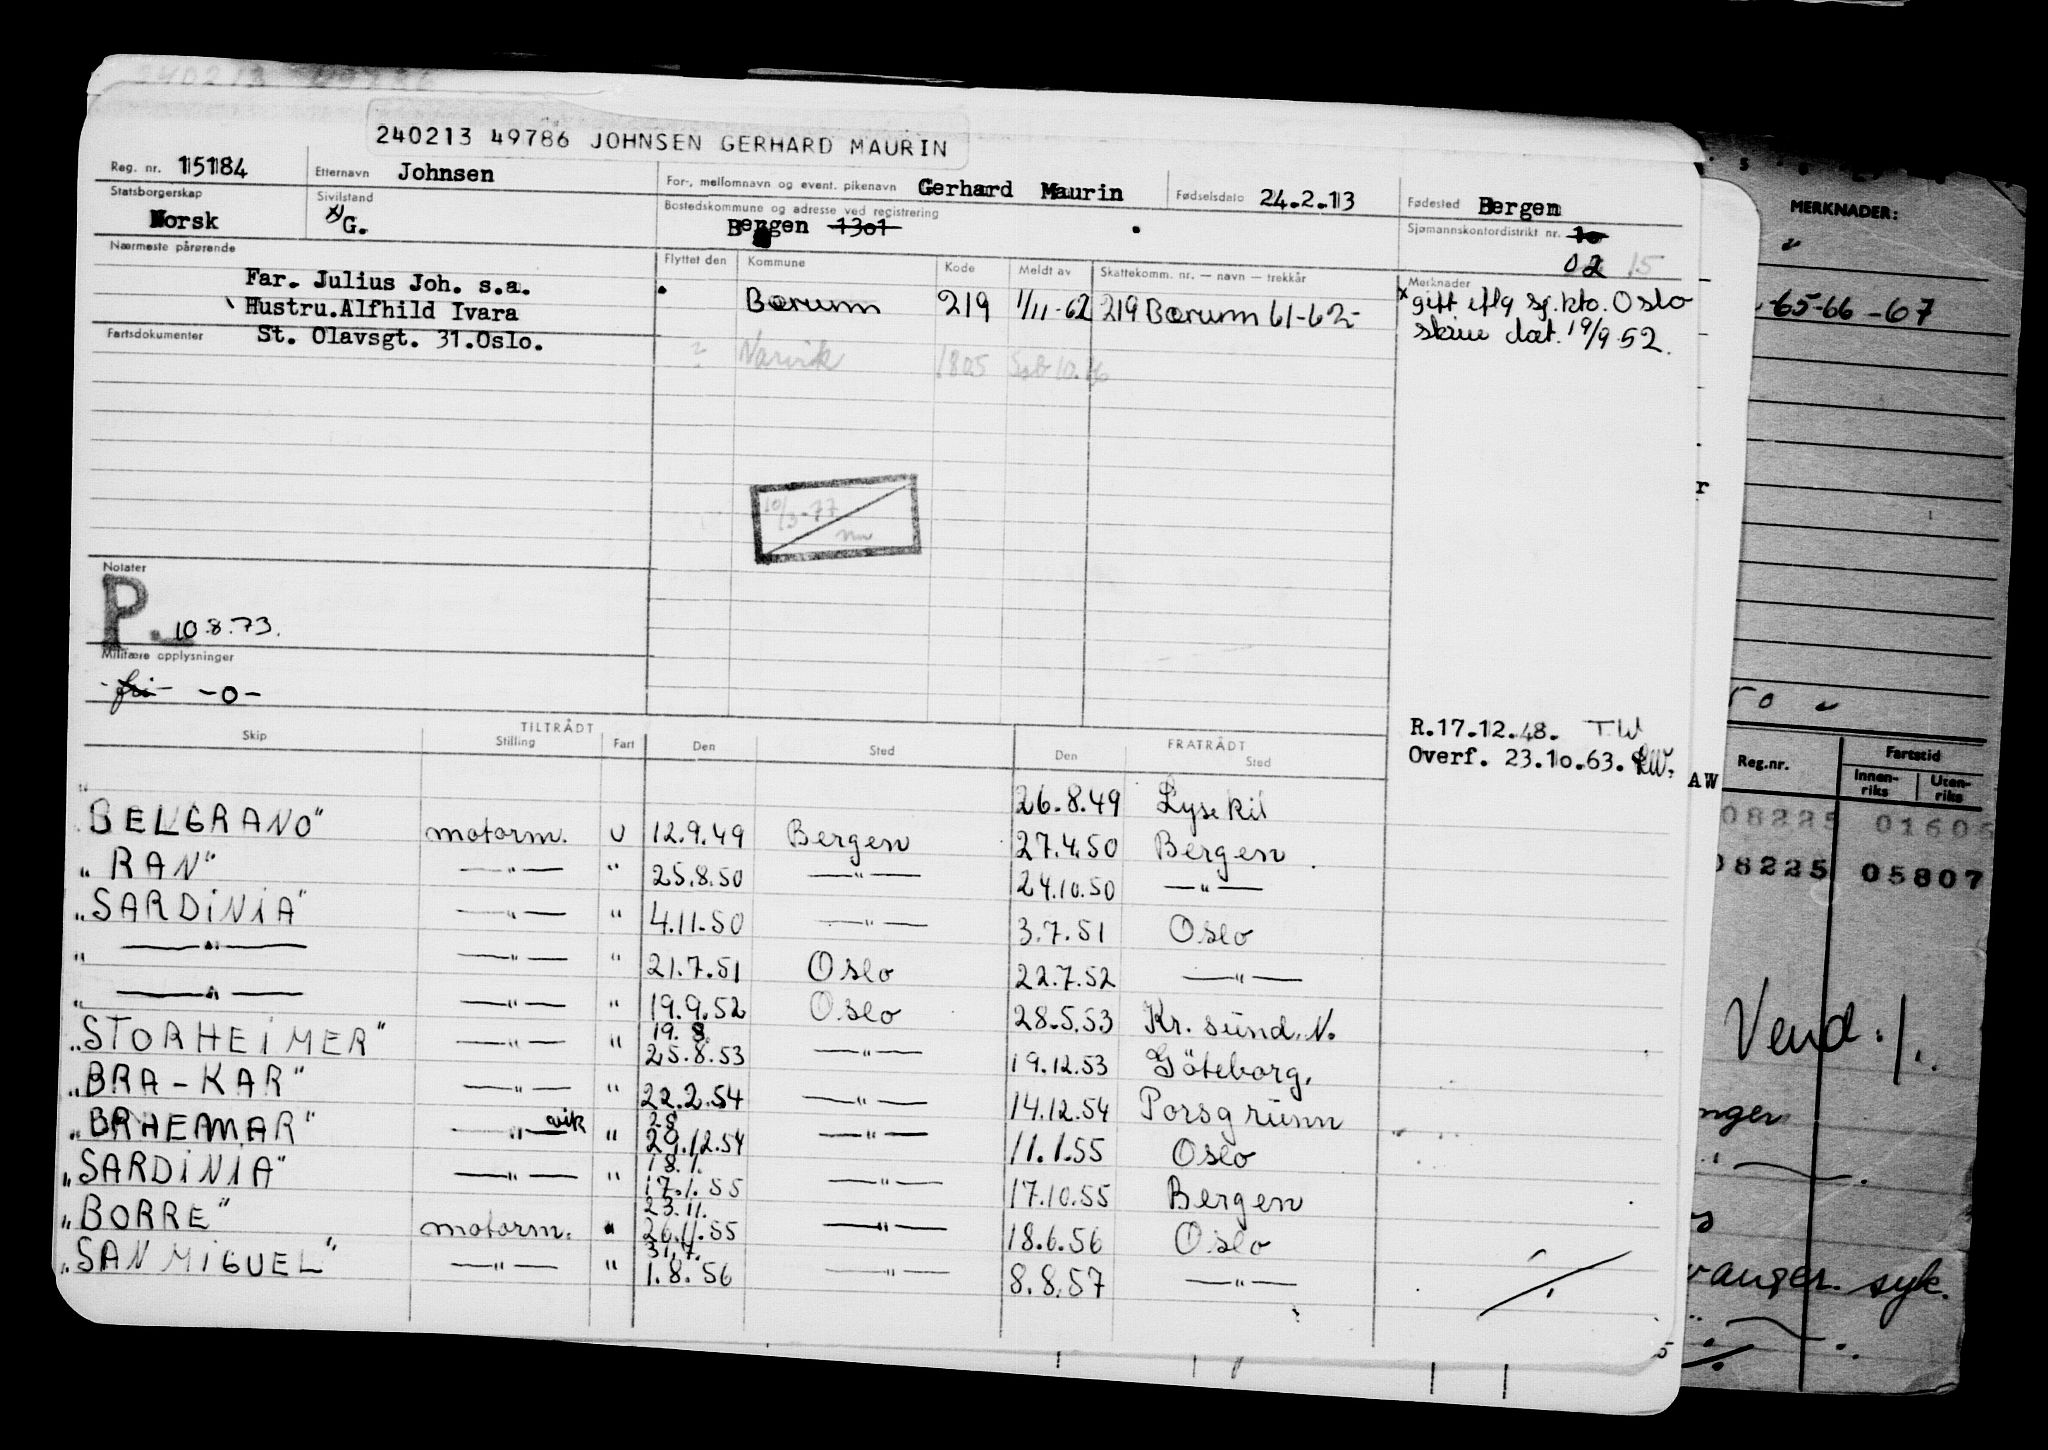 240213 49786 JOHNSEN GERHARD MAURIN
Reg. nr. 15184 Etternavn Johnsen For-, mellomnavn og event. pikenavn Gerhard Maurin Fødselsdato 24.2.13 Fødested Bergen
Statsborgerskap Norsk Sivilstand x) G. Bostedskommune og adresse ved registrering Bergen 1301 Sjømannskontordistrikt nr. 10 02 15
Nærmeste pårørende Flyttet den Kommune Kode Meldt av Skattekomm. nr. — navn — trekkår Merknader
Far. Julius Joh. s.a.
Hustru.Alfhild Ivara Bærum 219 1/11-62 219 Bærum 61-62- x gift eflg sj.kto. Oslo
Fartsdokumenter St. Olavsgt. 31.Oslo. skriv dat. 19/9 52.
Narvik 1805
10/3-77
Notater
P. 10.8.73.
Militære opplysninger
-fri- -0-
R.17.12.48. TW
Overf. 23.10.63.
TILTRÅDT FRATRÅDT
Skip Stilling Fart Den Sted Den Sted
26.8.49 Lysekil
"BELGRANO" motorm. U 12.9.49 Bergen 27.4.50 Bergen
"RAN" —"— " 25.8.50 —"— 24.10.50 —"—
"SARDINIA" —"— " 4.11.50 —"— 3.7.51 Oslo
" —"— —"— " 21.7.51 Oslo 22.7.52 —"—
" —"— —"— " 19.9.52 Oslo 28.5.53 Kr.sund.N.
"STORHEIMER" —"— " 19.8. 25.8.53 —"— 19.12.53 Göteborg.
"BRA-KAR" —"— " 22.2.54 —"— 14.12.54 Porsgrunn
"BRHEMAR" —"— vik " 28 29.12.54 —"— 11.1.55 Oslo
"SARDINIA" —"— " 18.1. 17.1.55 —"— 17.10.55 Bergen
"BORRE" motorm. " 23.11. 26.11.55 —"— 18.6.56 Oslo
"SAN MIGUEL" —"— " 31.7. 1.8.56 —"— 8.8.57 —"—
MERKNADER:
-65-66-67
Reg.nr. Fartstid
Innen-riks Uten-riks
08225 01605
08225 05807
AW
Vend ./.
syk.